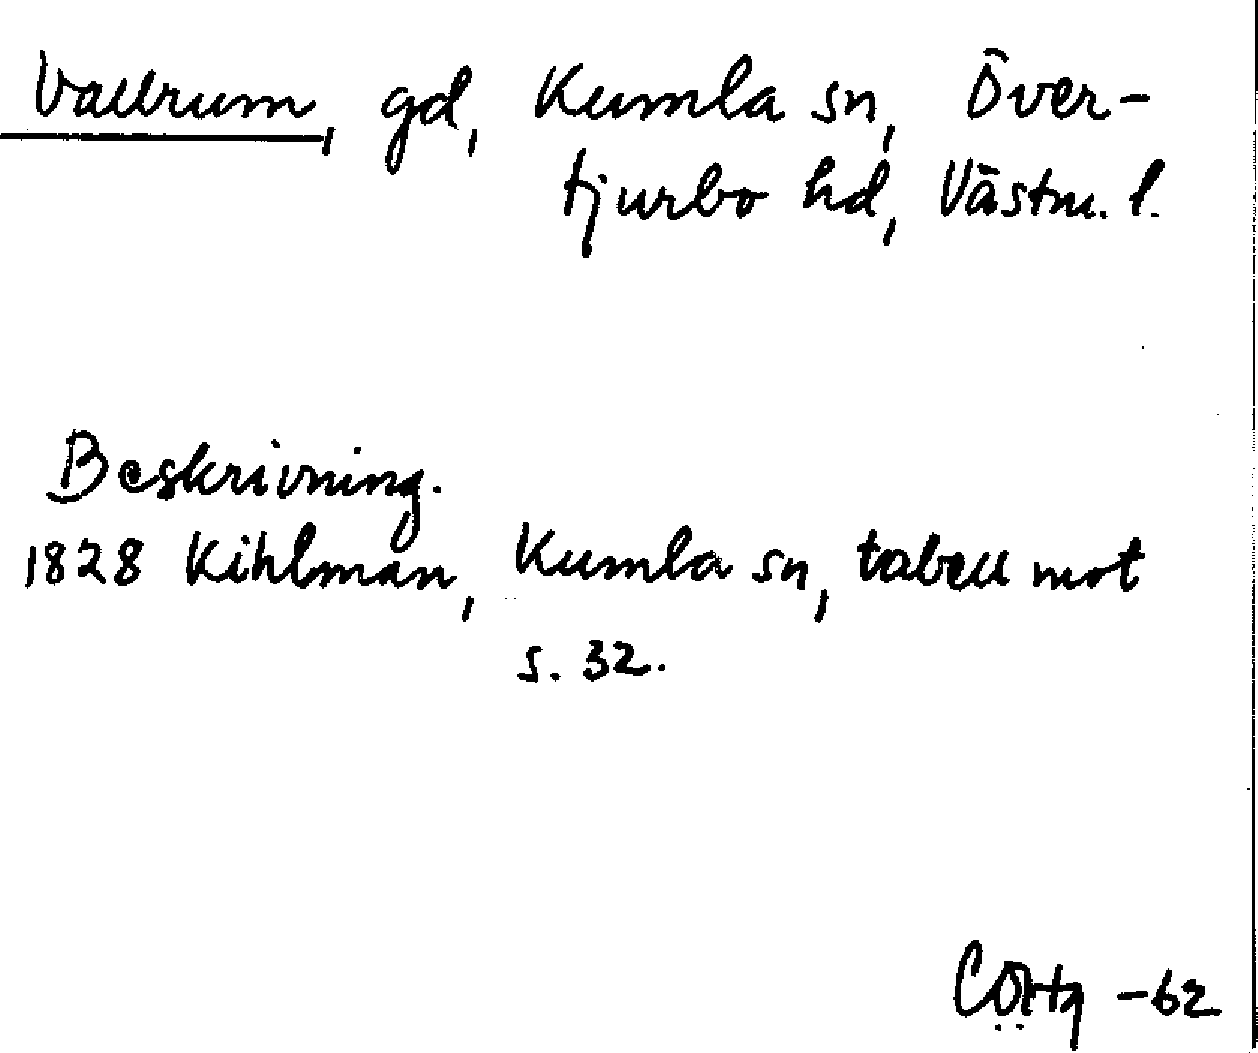 Vallrum, gd, Kumla sn, Över-
tjurbo hd, Västm. l.
Beskrivning.
1828 Kihlman, Kumla sn, tabell mot
s. 32.
-62